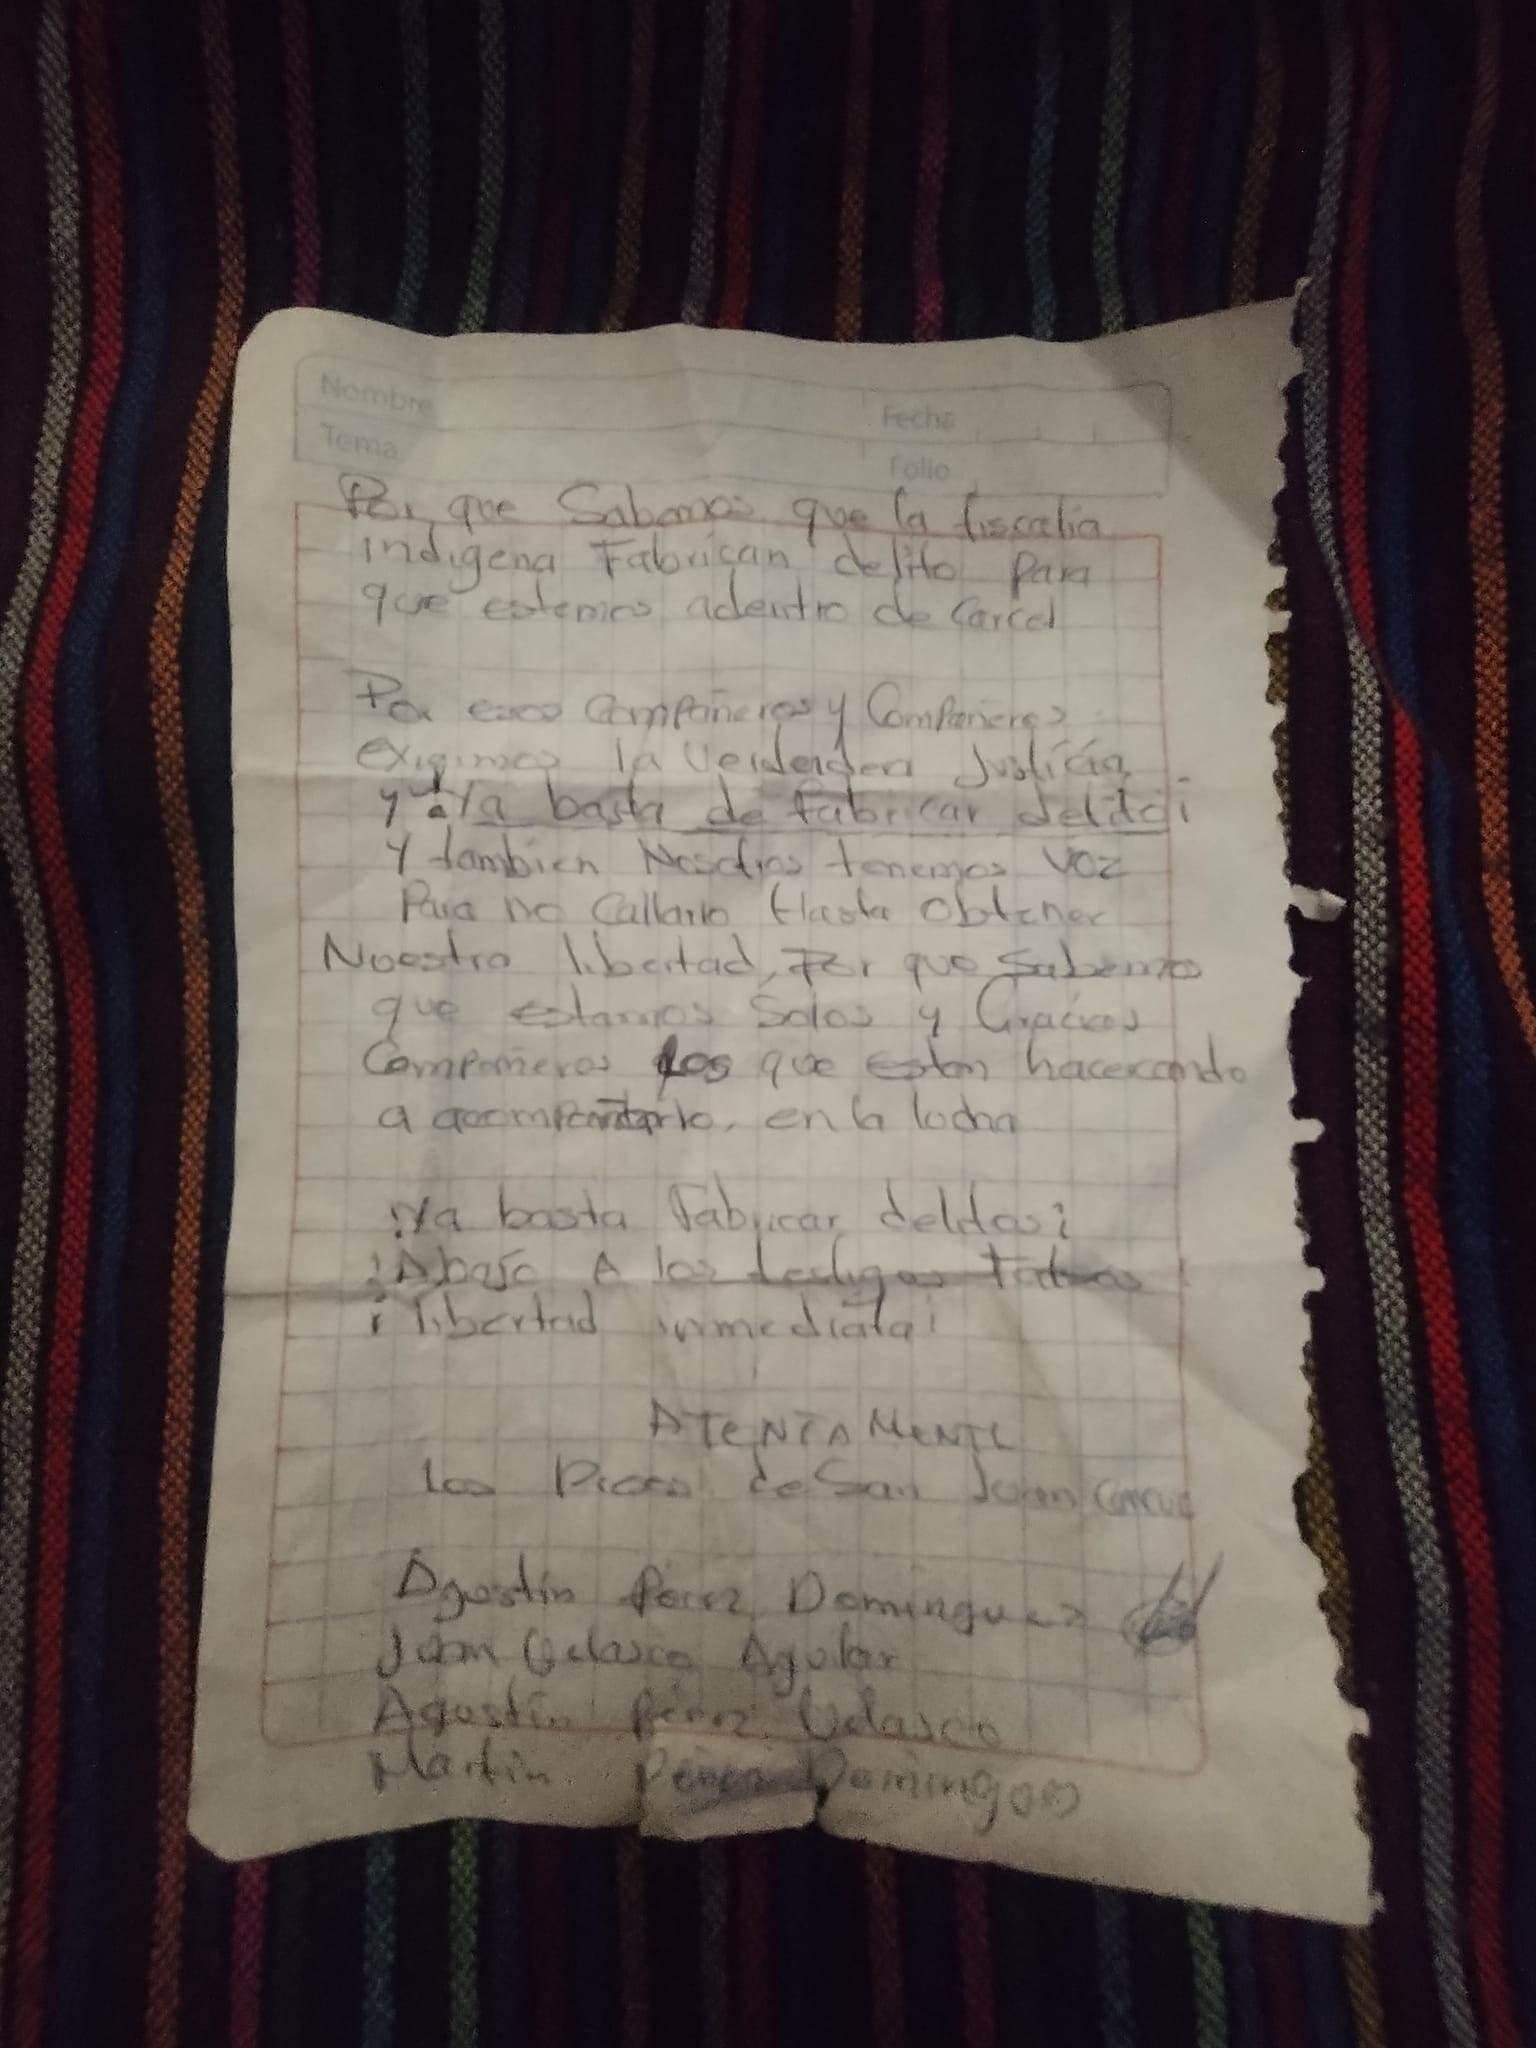 Nombre Fecha
Tema Folio
Por que Sabemos que la fiscalia
indigena Fabrican delito para
que estemos adentro de Carcel
Por esos Compañeros y Compañeras
exigimos la Verdadera Justicia
y ya basta de fabricar delito¡
Y tambien Nosotros tenemos voz
Para no Callarlo Hasta Obtener
Nuestra libertad, Por que Sabemos
que estamos Solos y Gracias
Compañeros los que estan hacercando
a acompañarlo, en la lucha
¡Ya basta Fabricar delitos¡
¡Abajo A los testigos falsos
¡libertad inmediata¡
ATENTAMENTE
Los Presos de San Juan
Agustín Pérez Domínguez
Juan Velasco Aguilar
Agustín Pérez Velasco
Martín Pérez Domínguez